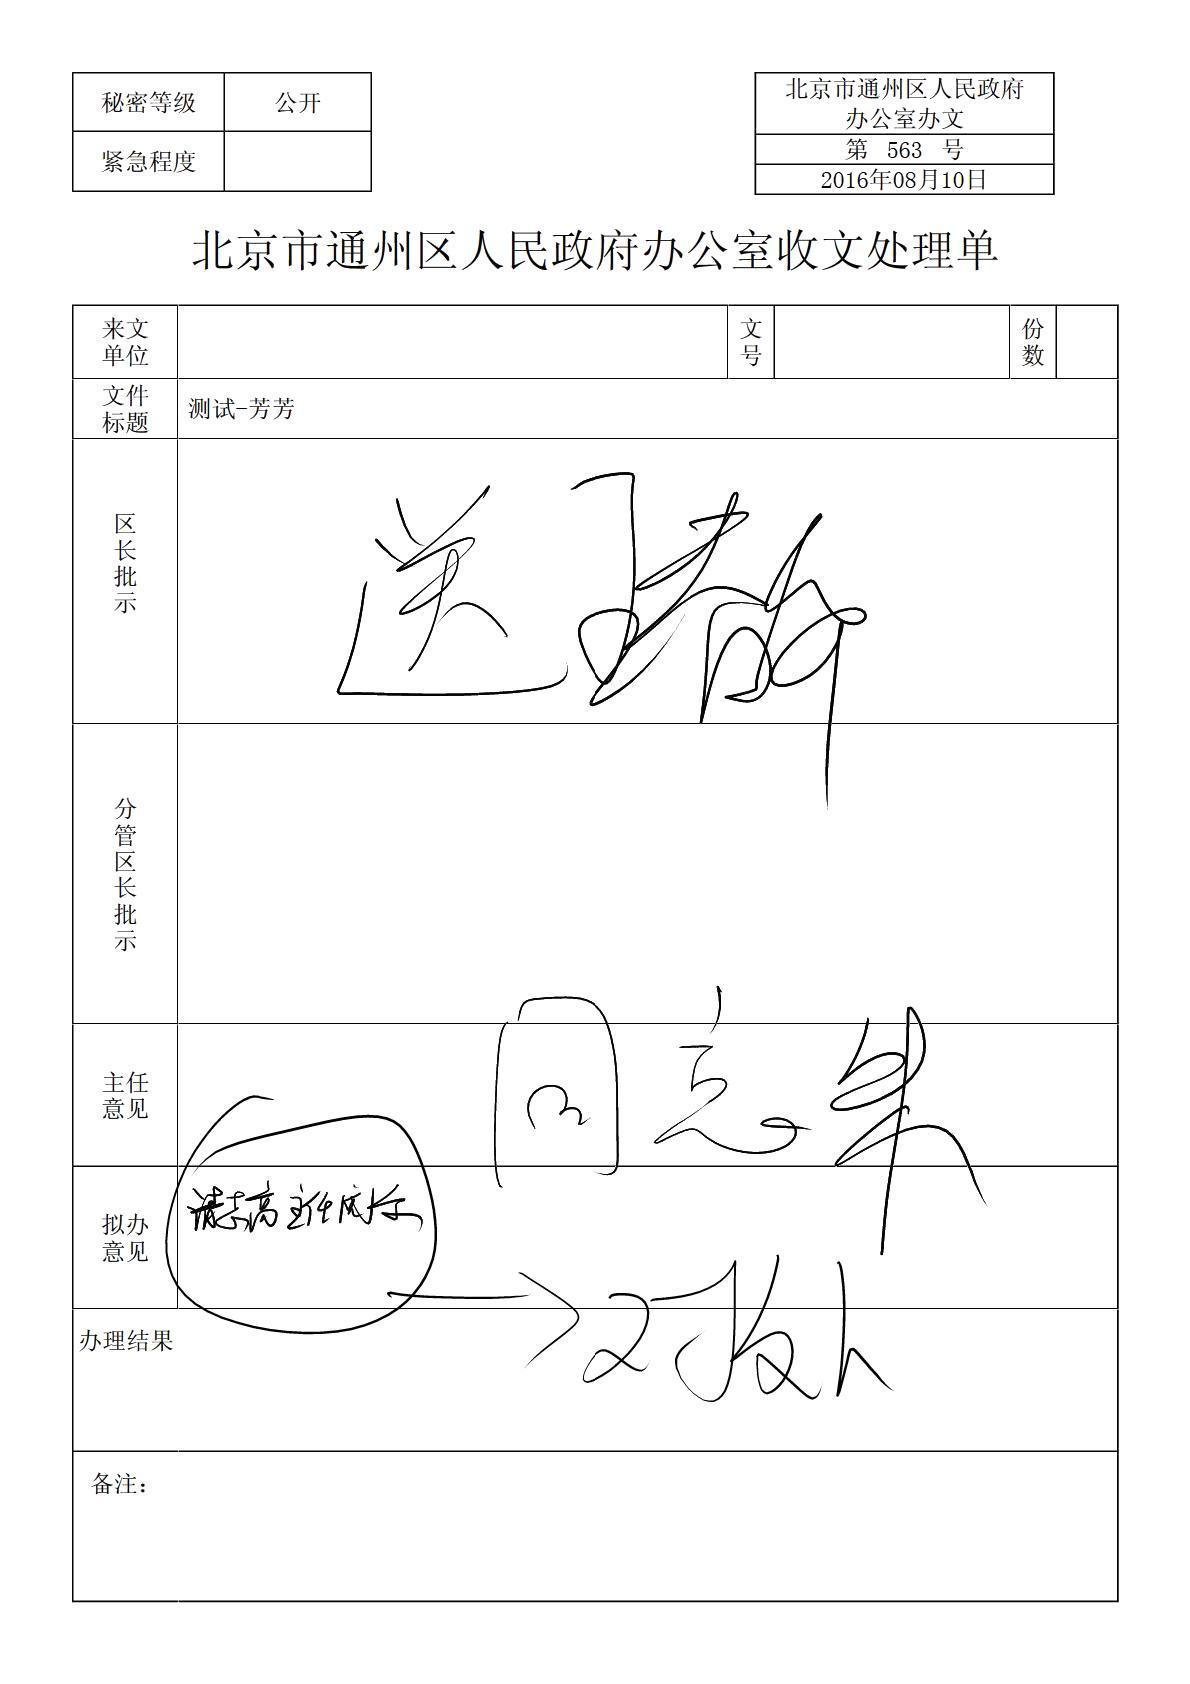 秘密等级 公开
紧急程度
北京市通州区人民政府
办公室办文
第 563 号
2016年08月10日
北京市通州区人民政府办公室收文处理单
来文单位 文号 份数
文件标题 测试-芳芳
区长批示
送
分管区长批示
主任意见
同意
拟办意见
请志高主任
办理结果
备注：